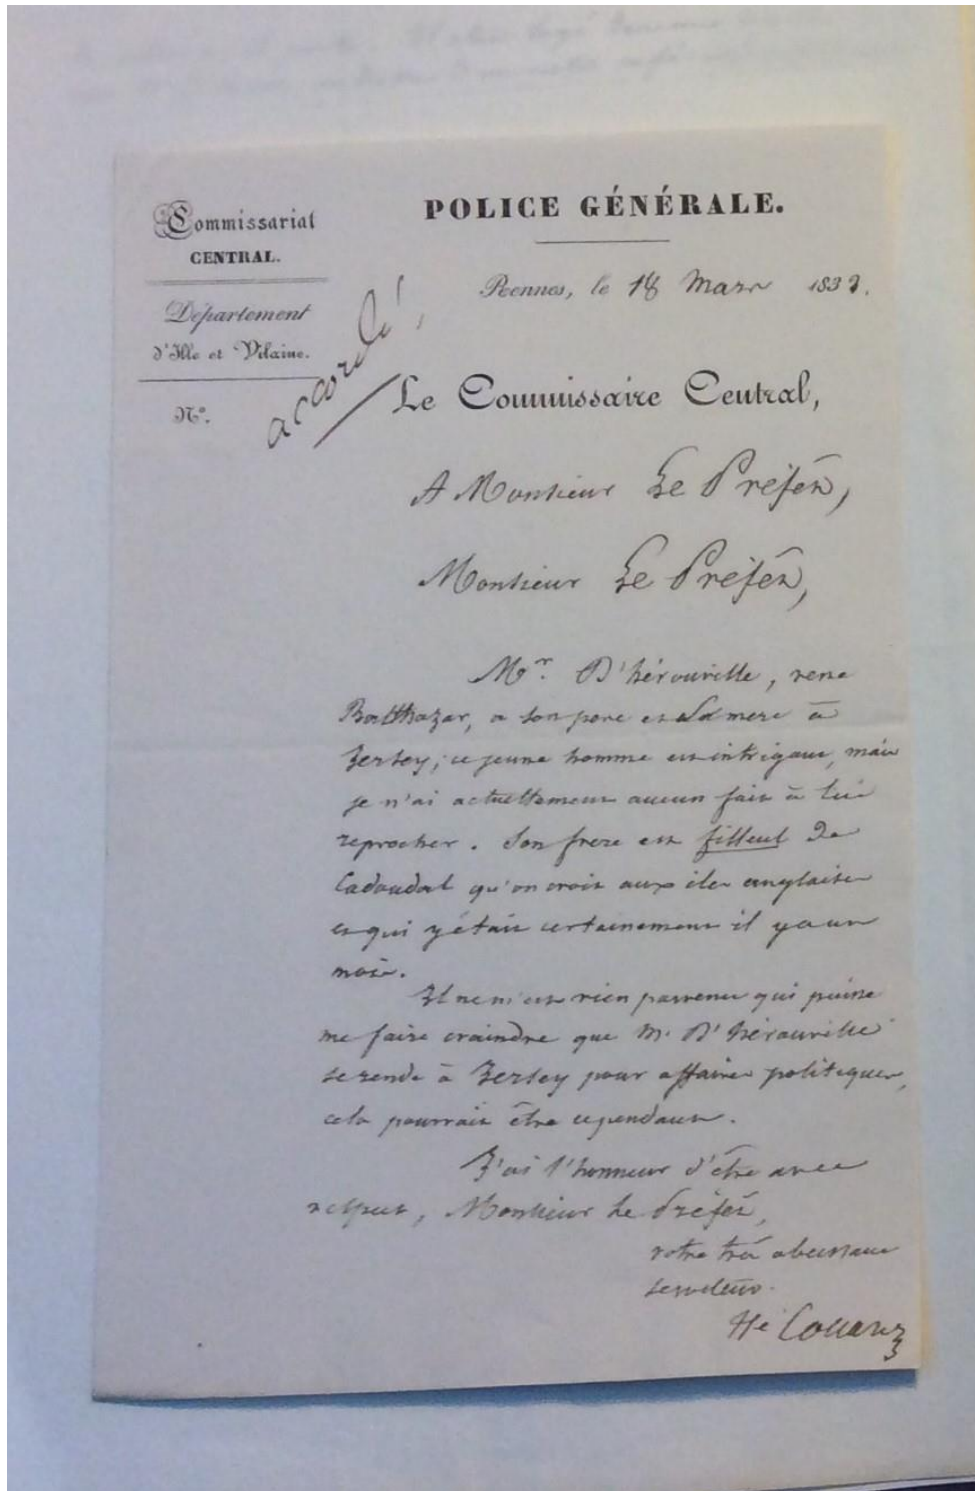 Commissariat
CENTRAL.
Département
d'Ille et Vilaine.
N.º
accordé!
POLICE GÉNÉRALE.
Rennes, le 18 Mars 1833.
Le Commissaire Central,
A Monsieur Le Préfet,
Monsieur Le Préfet,
Mr. D'hérouville, rené
Balthazar, a son pere et sa mere à
Jersey; ce jeune homme est intrigant, mais
je n'ai actuellement aucun fait à lui
reprocher. Son frere est filleul de
Cadoudal qu'on croit aux iles anglaises
et qui y était certainement il y a un
mois.
Il ne m'est rien parvenu qui puisse
me faire craindre que M. D'hérouville
se rende à Jersey pour affaires politiques,
cela pourrait être cependant.
J'ai l'honneur d'être avec
respect, Monsieur Le Préfet,
votre très obeissant
serviteur.